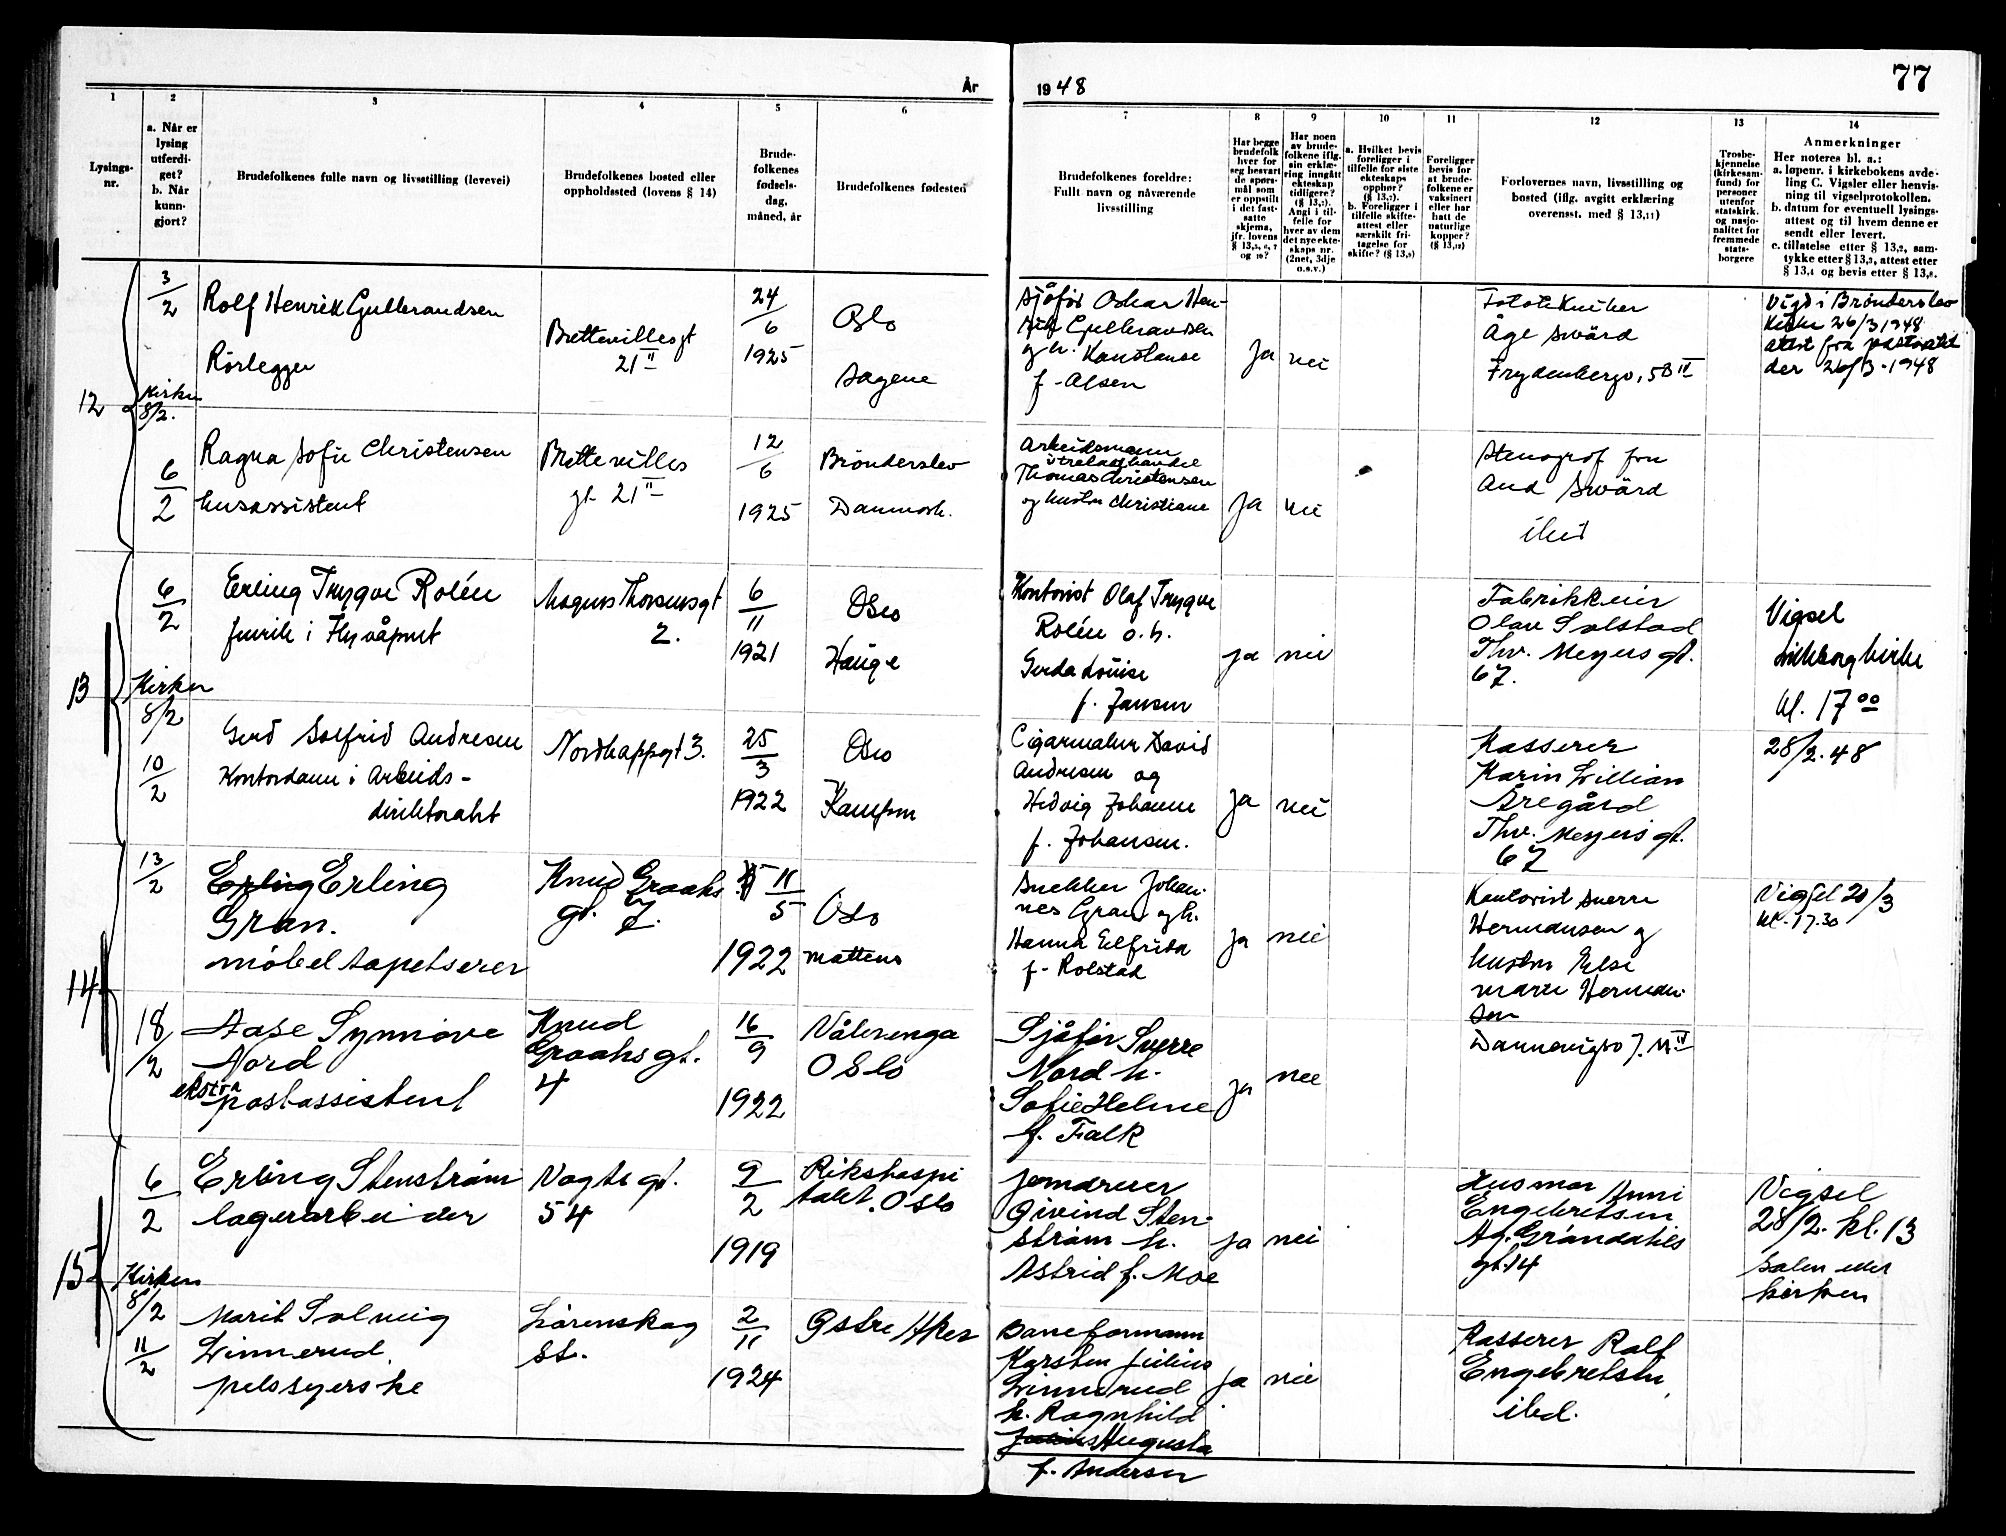 År 1948
77
1
2
3
4
5
6
7
8
9
10
11
12
13
14
Lysings-
nr.
a. Når er
lysing
utferdi-
get?
b. Når
kunn-
gjort?
Brudefolkenes fulle navn og livsstilling (levevei)
Brudefolkenes bosted eller
oppholdssted (lovens § 14)
Brude-
folkenes
fødsels-
dag,
måned, år
Brudefolkenes fødested
Brudefolkenes foreldre:
Fullt navn og nåværende
livsstilling
Har begge
brudefolk
hver for
seg besvart
de spørs-
mål som
er oppstilt
i det fast-
satte
skjema,
jfr. lovens
§ 13,5, 6, 7
og 10?
Har noen
av brude-
folkene iflg.
sin erklæ-
ring inngått
ekteskap
tidligere?
(§ 13,7).
Angi i til-
felle for
hver av dem
det nye ekte-
skaps nr.
(2net, 3dje
o.s.v.)
a. Hvilket bevis
foreligger i
tilfelle for siste
ekteskaps
opphør?
(§ 13,7).
b. Foreligger i
tilfelle skifte-
attest eller
særskilt fri-
tagelse for
skifte? (§ 13,8)
Foreligger
bevis for
at brude-
folkene er
vaksinert
eller har
hatt de
naturlige
kopper?
(§ 13,12)
Forlovernes navn, livsstilling og
bosted (iflg. avgitt erklæring
overensst. med § 13,11)
Trosbe-
kjennelse
(kirkesam-
fund) for
personer
utenfor
statskirk.
og nasjo-
nalitet for
fremmede
stats-
borgere
Anmerkninger
Her noteres bl. a.:
a. løpenr. i kirkebokens avde-
ling C. Vigsler eller henvis-
ning til vigselprotokollen.
b. datum for eventuell lysings-
attest og til hvem denne er
sendt eller levert.
c. tillatelse etter § 13,2, sam-
tykke etter § 13,3, attest etter
§ 13,4 og bevis etter § 13,6.
12
3/2
Kirken
8/2.
Rolf Henrik Gulbrandsen
Rørlegger
Brettevillesgt
21 II
24/6
1925
Oslo
Sagene
Sjåfør Oskar Hen-
rik Gulbrandsen
og h. Konstanse
f. Olsen
ja
nei
Fototekniker
Åge Swärd
Frydenbergv, 5B IV
Vigd i Brønderslev
Kirke 26/3 1948
attest fra pastoratet
der 26/3 - 1948
6/2
Ragna Sofie Christensen
husassistent
Brettevilles
gt. 21 II
12/6
1925
Brønderslev
Danmark.
Arbeidsmann
i trelasthandel
Thomas Christensen
og hustru Christiane
ja
nei
Stenograf fru
Aud Swärd
ibid
13
6/2
Kirken
8/2
Erling Trygve Rolén
fenrik i Flyvåpnet
Magnus Thorsensgt
2.
6/11
1921
Oslo
Hauge
Kontorist Olaf Trygve
Rolén o. h.
Gerda Louise
f. Jansen
ja
nei
Fabrikkeier
Olav Solstad
Thv. Meyers gt.
67.
Vigsel
Lilleborg kirke
kl. 17 00
10/2
Gerd Solfrid Andresen
Kontordame i Arbeids-
direktoratet
Nordkappgt 3.
25/3
1922
Oslo
Kampen
Cigarmaker David
Andresen og
Hedvig Johanne
f. Johansen.
ja
nei
Kasserer
Karin Lillian
Åregård
Thv. Meyers gt.
67
28/2. 48
14
13/2
Erling Erling
Gran.
møbeltapetserer
Knud Graahs
gt. 7.
11/5
1922
Oslo
Matteus
Snekker Johan-
nes Gran og h.
Hanna Elfrida
f. Rolstad
ja
nei
Kontorist Sverre
Hermansen og
hustru Else
Marie Herman-
sen
Dannevigsv 7. IV
Vigsel 20/3
kl. 17.30
18/2
Aase Synnøve
Nord
ekstra
postassistent
Knud
Graahs gt.
4
16/9
1922
Vålerenga
Oslo
Sjåfør Sverre
Nord h.
Sofie Helene
f. Falk
ja
nei
15
6/2
Kirken
8/2
Erling Stenstrøm
lagerarbeider
Vogts gt.
54
9/2
1919
Rikshospi
talet. Oslo
Jerndreier
Øivind Sten-
strøm h.
Astrid f. Moe
ja
nei
Husmor Anni
Engebretsen
Ag. Grøndahls
gt. 14
Vigsel
28/2. kl. 13
Salen eller
kirken
11/2
Marit Solveig
Linnerud.
pelssyerske
Lørenskog
St.
2/11
1924
Østre Aker
Baneformann
Karsten Julius
Linnerud
h. Ragnhild
Augusta
f. Andersen
ja
nei
Kasserer Rolf
Engebretsen,
ibd.